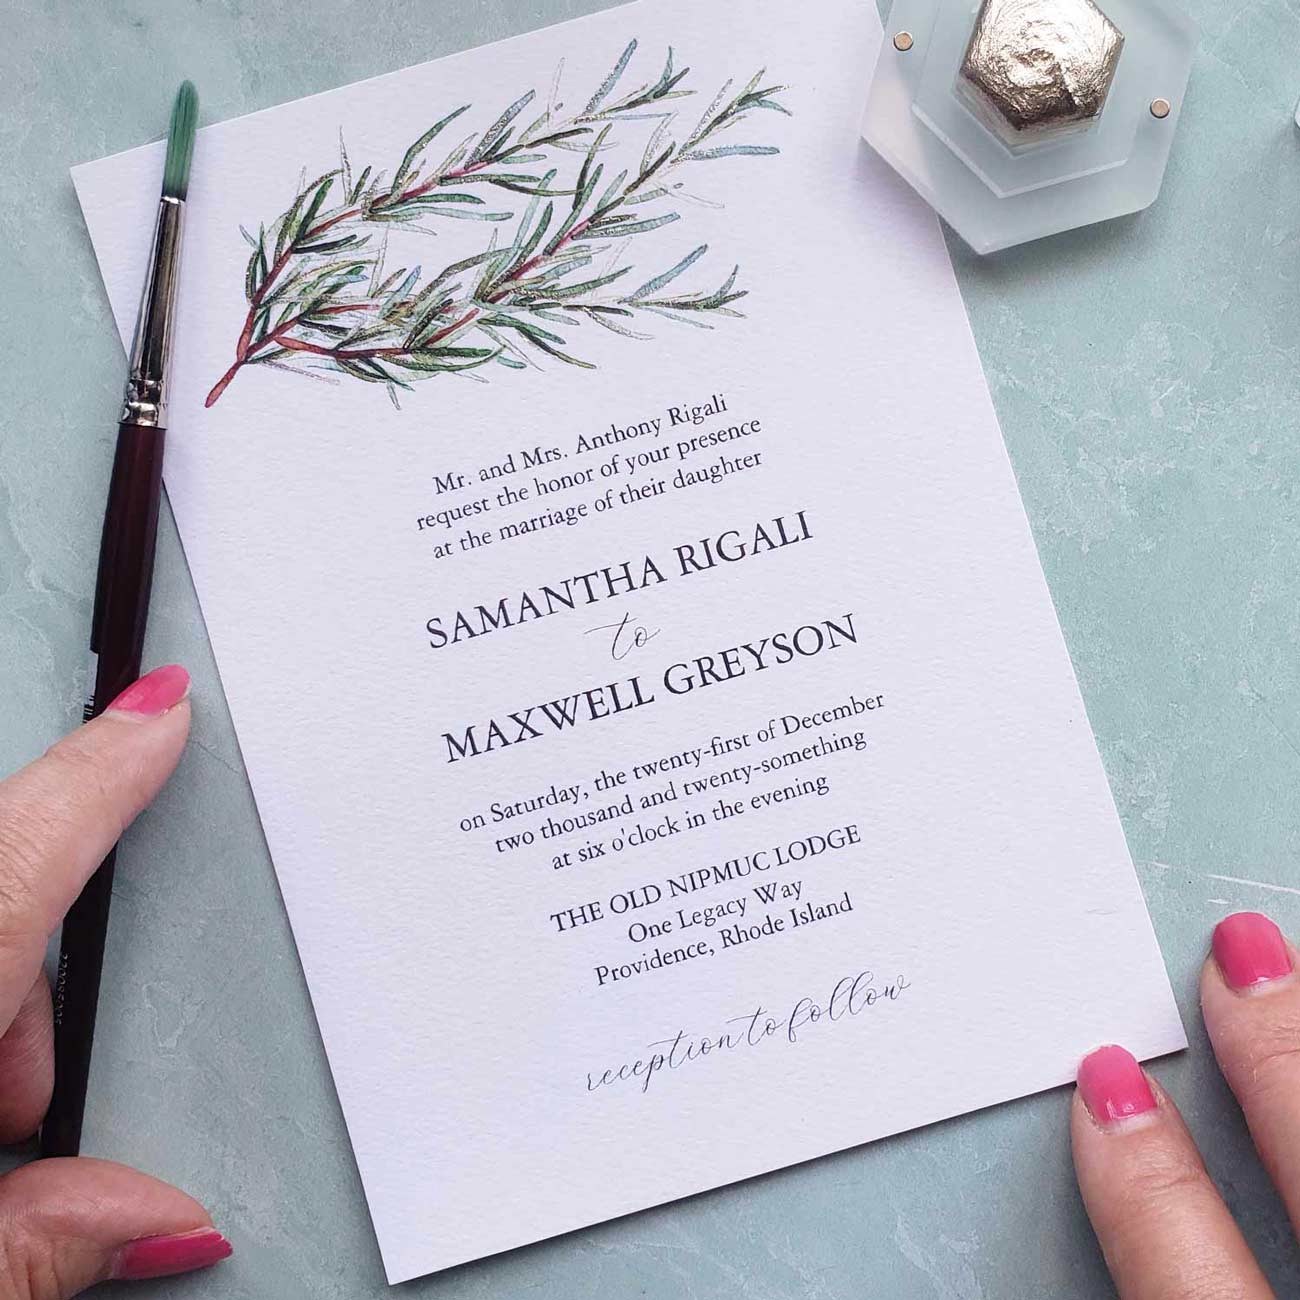 Mr. and Mrs. Anthony Rigali
request the honor of your presence
at the marriage of their daughter
SAMANTHA RIGALI
to
MAXWELL GREYSON
on Saturday, the twenty-first of December
two thousand and twenty-something
at six o'clock in the evening
THE OLD NIPMUC LODGE
One Legacy Way
Providence, Rhode Island
reception to follow